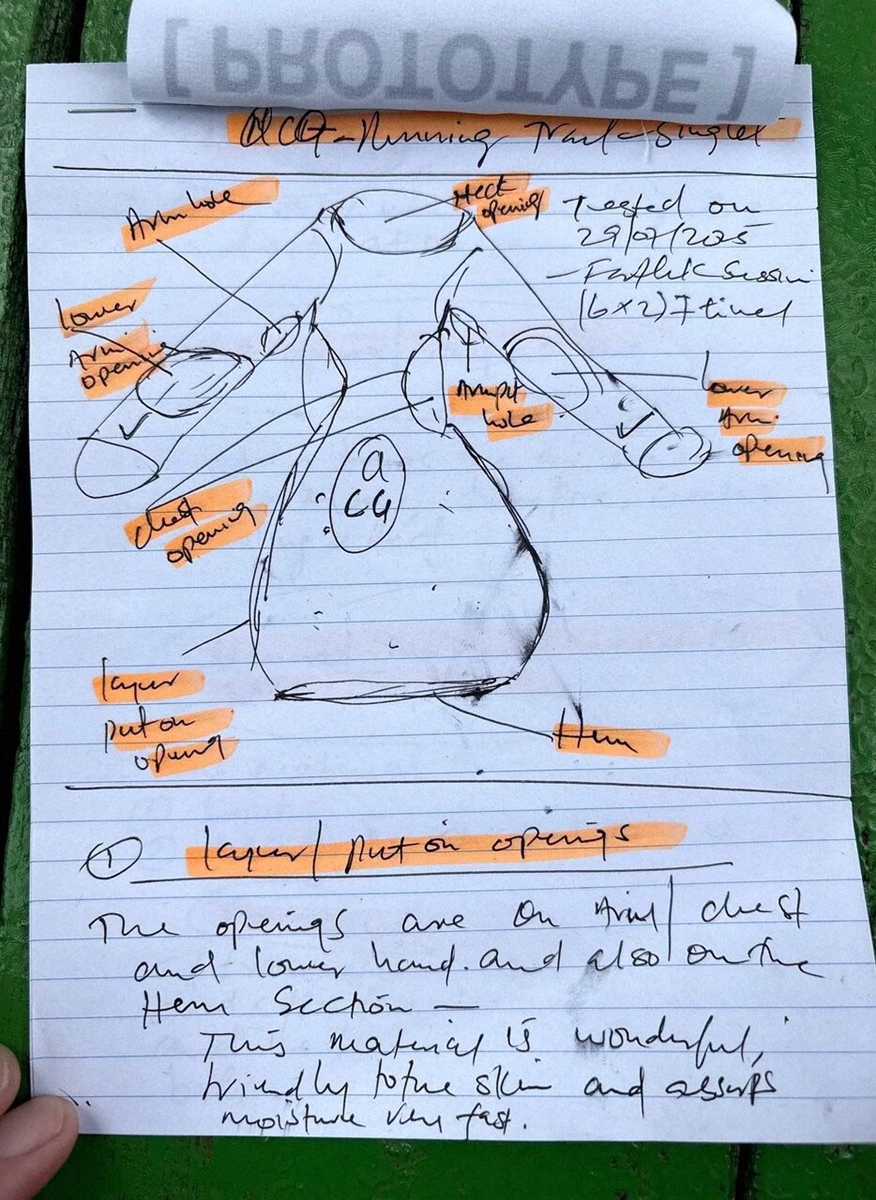 [PROTOTYPE]
ACG-Running Trail-Singlet
Arm hole
Neck
opening
Tested on
29/07/205
- Fartlek Session
(6x2) 7 times
lower
Arm
opening
Armpit
hole
lower
Arm
opening
chest
opening
a
CG
layer
put on
opening
Hem
① layer/put on openings
The openings are on Arm/chest
and lower hand. and also on the
Hem Section —
This material is wonderful,
friendly to the skin and absorbs
moisture very fast.